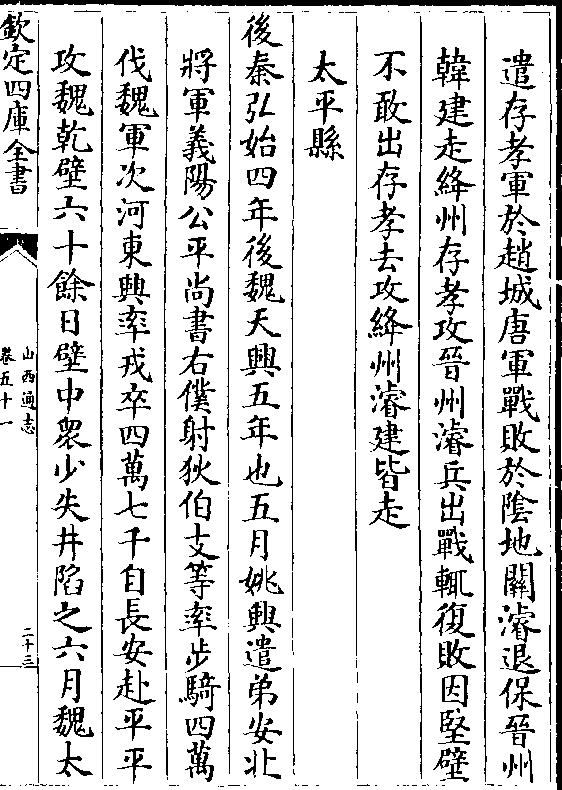 遣存孝軍於趙城唐軍戰敗於隂地關濬退保晉州
韓建走絳州存孝攻晉州濬兵出戰輒復敗因堅壁
不敢出存孝去攻絳州濬建皆走
太平縣
後秦弘始四年後魏天興五年也五月姚興遣弟安北
將軍義陽公平尚書右僕射狄伯支等率步騎四萬
伐魏軍次河東興率戎卒四萬七千自長安赴平平
攻魏乾壁六十餘日壁中衆少失井陷之六月魏太
欽定四庫全書
山西通志
卷五十一
二十三